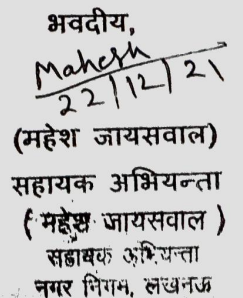 भवदीय,
Mahesh
22/12/21
(महेश जायसवाल)
सहायक अभियन्ता
( महेश जायसवाल )
सहायक अभियन्ता
नगर निगम, लखनऊ